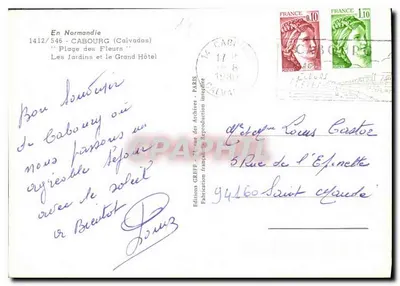 En Normandie
1412/546 - CABOURG (Calvados)
"Plage des Fleurs"
Les Jardins et le Grand Hôtel
Bon Souvenir
de Cabourg où
nous passons un
agréable séjour
avec le soleil
a Bientot
Editions GREFF - rue des Archives - PARIS
Fabrication française - Reproduction interdite
0,10
1,10
14 CABOURG
CABOURG
Louis Castor
5 Rue de l'Epinette
94160 Saint Mandé
CPAPHIL